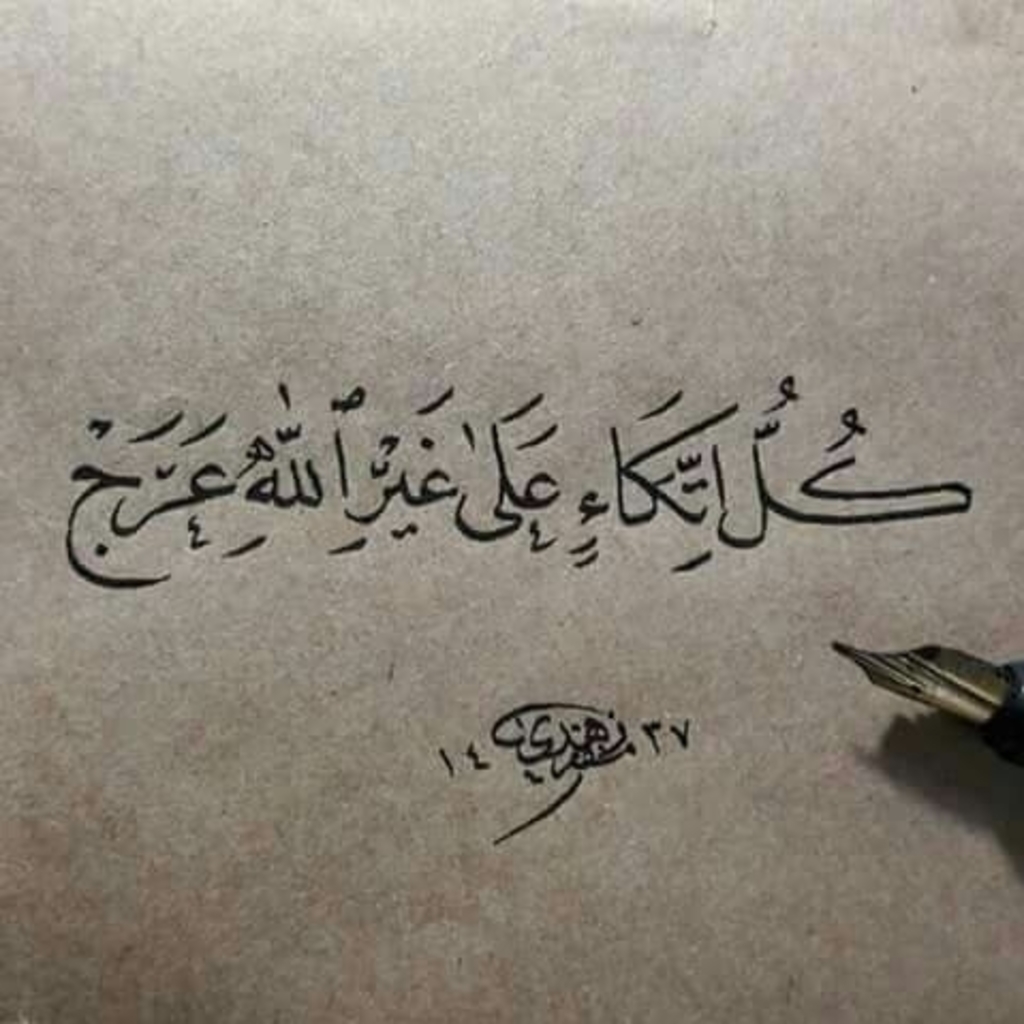 كُلُّ اتِّكَاءٍ عَلَىٰ غَيْرِ ٱللَّهِ عَرَجْ
١٤ ٣٧